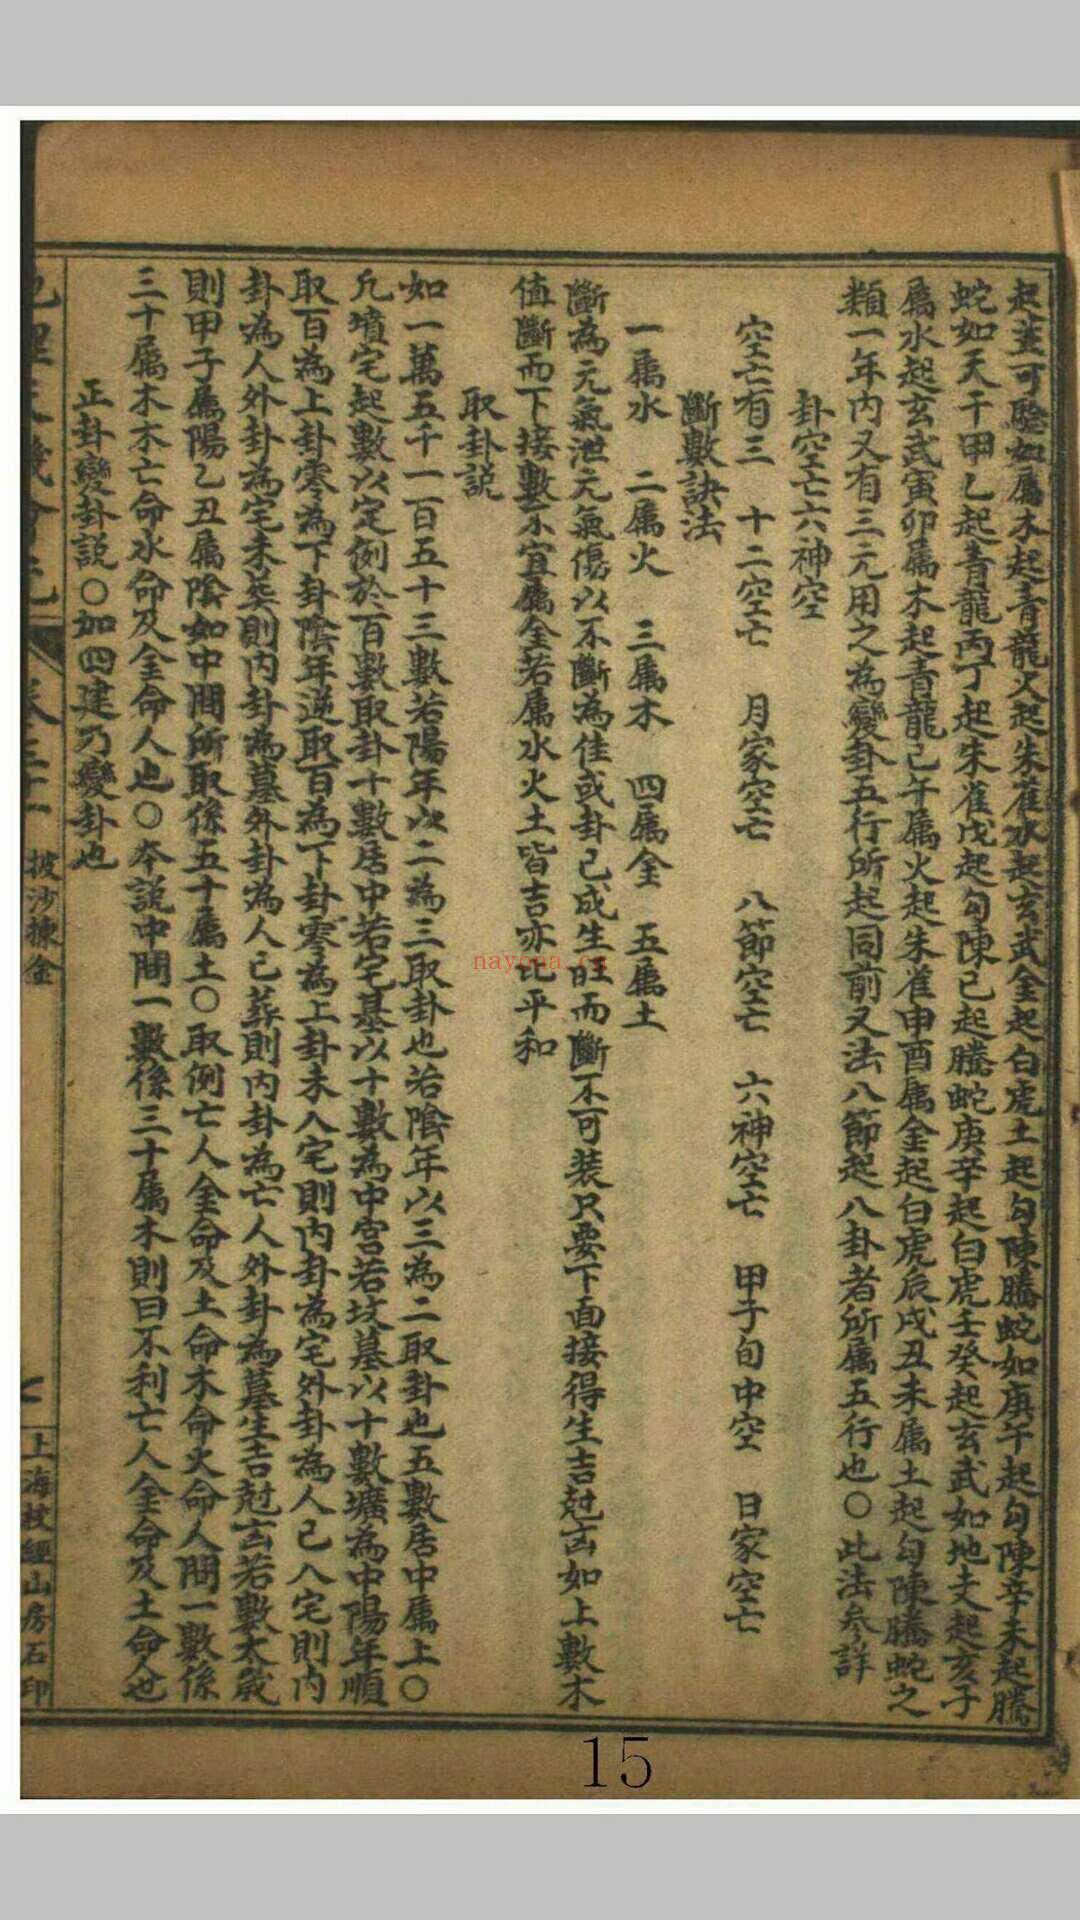 起蓋可驗如屬木起青龍火起朱雀水起玄武金起白虎土起勾陳螣蛇如庚午起勾陳辛未起騰
蛇如天干甲乙起青龍丙丁起朱雀戊起勾陳己起騰蛇庚辛起白虎壬癸起玄武如地支起亥子
屬水起玄武寅卯屬木起青龍巳午屬火起朱雀申酉屬金起白虎辰戌丑未屬土起勾陳騰蛇之
類一年內又有三元用之為變卦五行所起同前又法八節起八卦者所屬五行也○此法參詳
卦空亡六神空
空亡有三 十二空亡 月家空亡 八節空亡 六神空亡 甲子旬中空 日家空亡
斷數訣法
一屬水 二屬火 三屬木 四屬金 五屬土
斷為元氣泄元氣傷以不斷為佳或卦已成生旺而斷不可裝只要下面接得生吉尅凶如上數木
值斷而下接數不宜屬金若屬水火土皆吉亦比平和
取卦說
如一萬五千一百五十三數若陽年以二為三取卦也若陰年以三為二取卦也五數居中屬土○
凡墳宅起數以定例於百數取卦十數居中若宅基以十數為中宮若坟墓以十數壙為中陽年順
取百為上卦零為下卦陰年逆取百為下卦零為上卦未入宅則內卦為宅外卦為人已入宅則內
卦為人外卦為宅未葬則內卦為墓外卦為人已葬則內卦為亡人外卦為墓生吉尅凶若數太歲
則甲子屬陽乙丑屬陰如中間所取係五十屬土○取例亡人金命及土命木命火命人間一數係
三十屬木木亡命水命及金命人也○本說中間一數係三十屬木則曰不利亡人金命及土命人也
正卦變卦說○如四建乃變卦也
披沙揀金
上海校經山房石印
nayona.cn
15